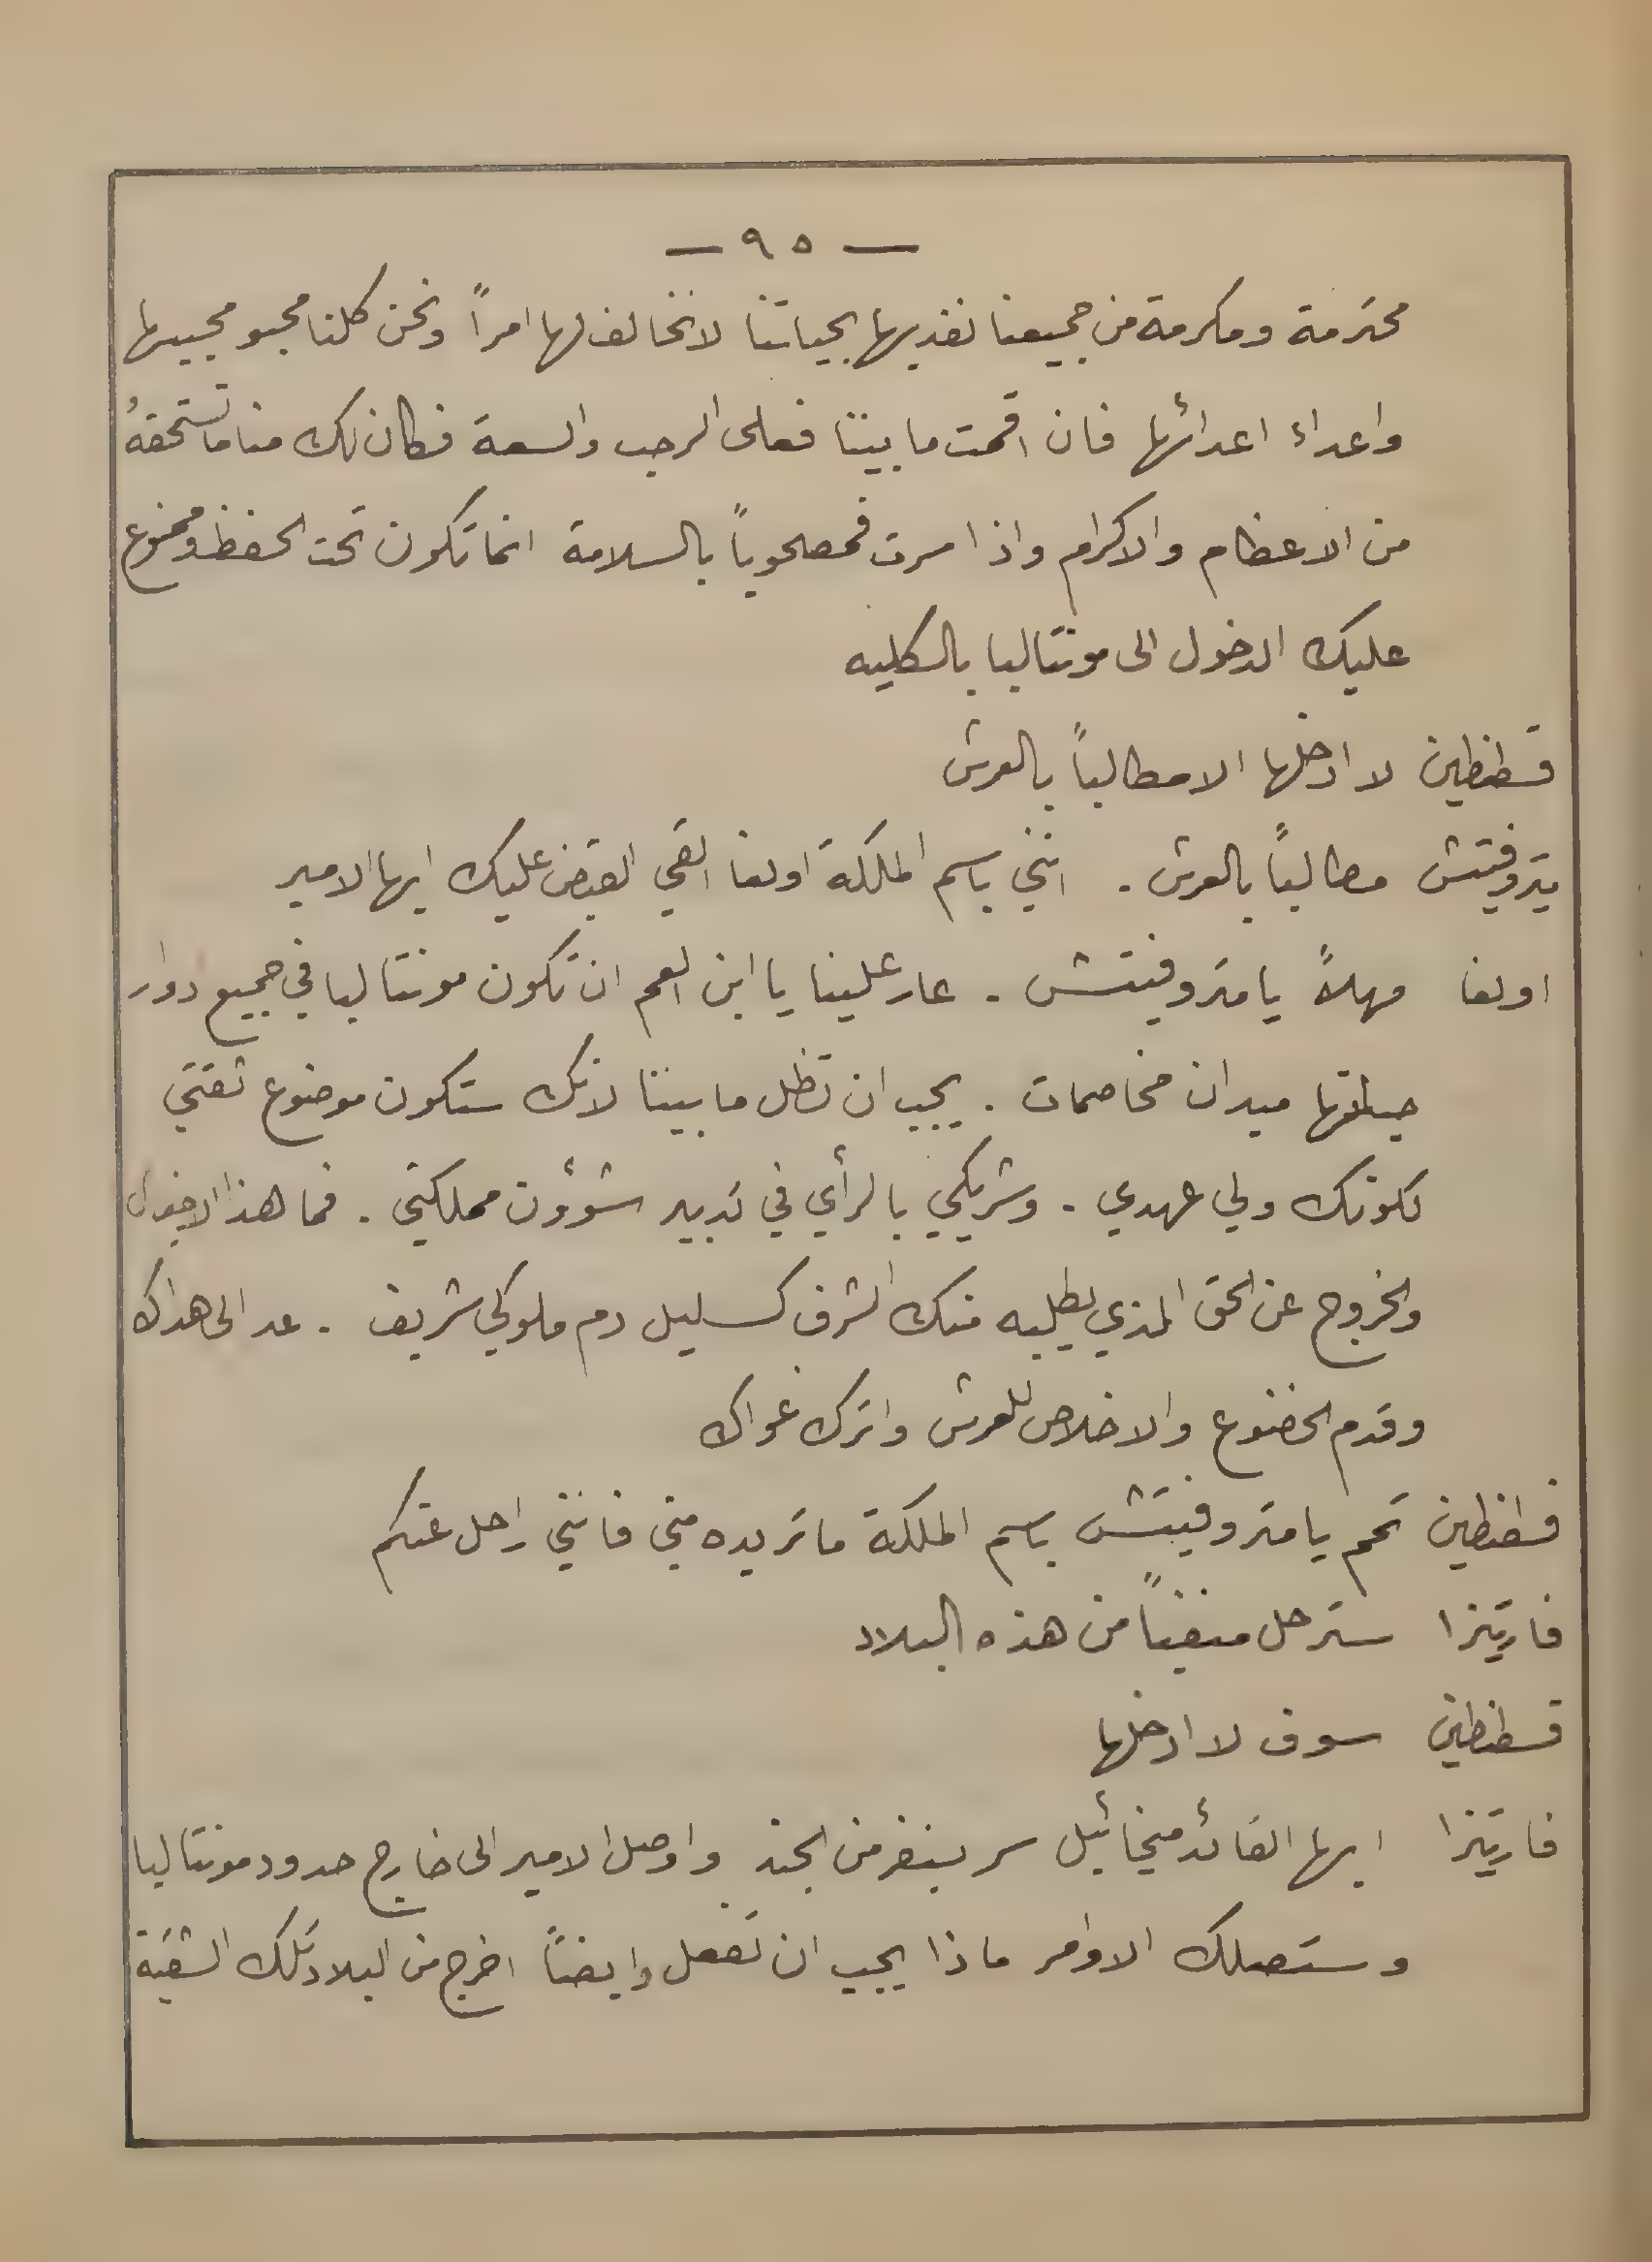 — ٩٥ —
محترمة ومكرمة من جميعنا نفديها بحياتنا لا نخالف لها امراً ونحن كلنا محبو محبيها
واعداء اعدائها فان اقمت ما بيننا فعلى الرحب والسعة فكان لك منا ما تستحقهُ
من الاعظام والاكرام واذا سرت فمصحوباً بالسلامة انما تكون تحت الحفظ وممنوع
عليك الدخول الى مونتاليا بالكليه
قسطنطين لا ادخلها الا مطالباً بالعرش
يتروفيتش مطالباً بالعرش . انني باسم الملكة اولغا القي القبض عليك ايها الامير
اولغا مهلاً يا متروفيتش . عار علينا يا ابن العم ان تكون مونتاليا في جميع دوار
حياتها ميدان مخاصمات . يجب ان تظل ما بيننا لانك ستكون موضوع ثقتي
لكونك ولي عهدي . وشريكي بالرأي في تدبير شوؤن مملكتي . فما هذا
والخروج عن الحق الذي يطلبه منك الشرف كسليل دم ملوكي شريف . عد الى هداك
وقدم الخضوع والاخلاص للعرش واترك غواك
قسطنطين تمم يا متروفيتش باسم الملكة ما تريده مني فانني راحل عنكم
فارتيزا سترحل منفياً من هذه البلاد
قسطنطين سوف لا ادخلها
فارتيزا ايها القائد ميخائيل سر بنفر من الجند واوصل الامير الى خارج حدود مونتاليا
وستصلك الاوامر ماذا يجب ان تفعل وايضاً اخرج من البلاد تلك الشقية